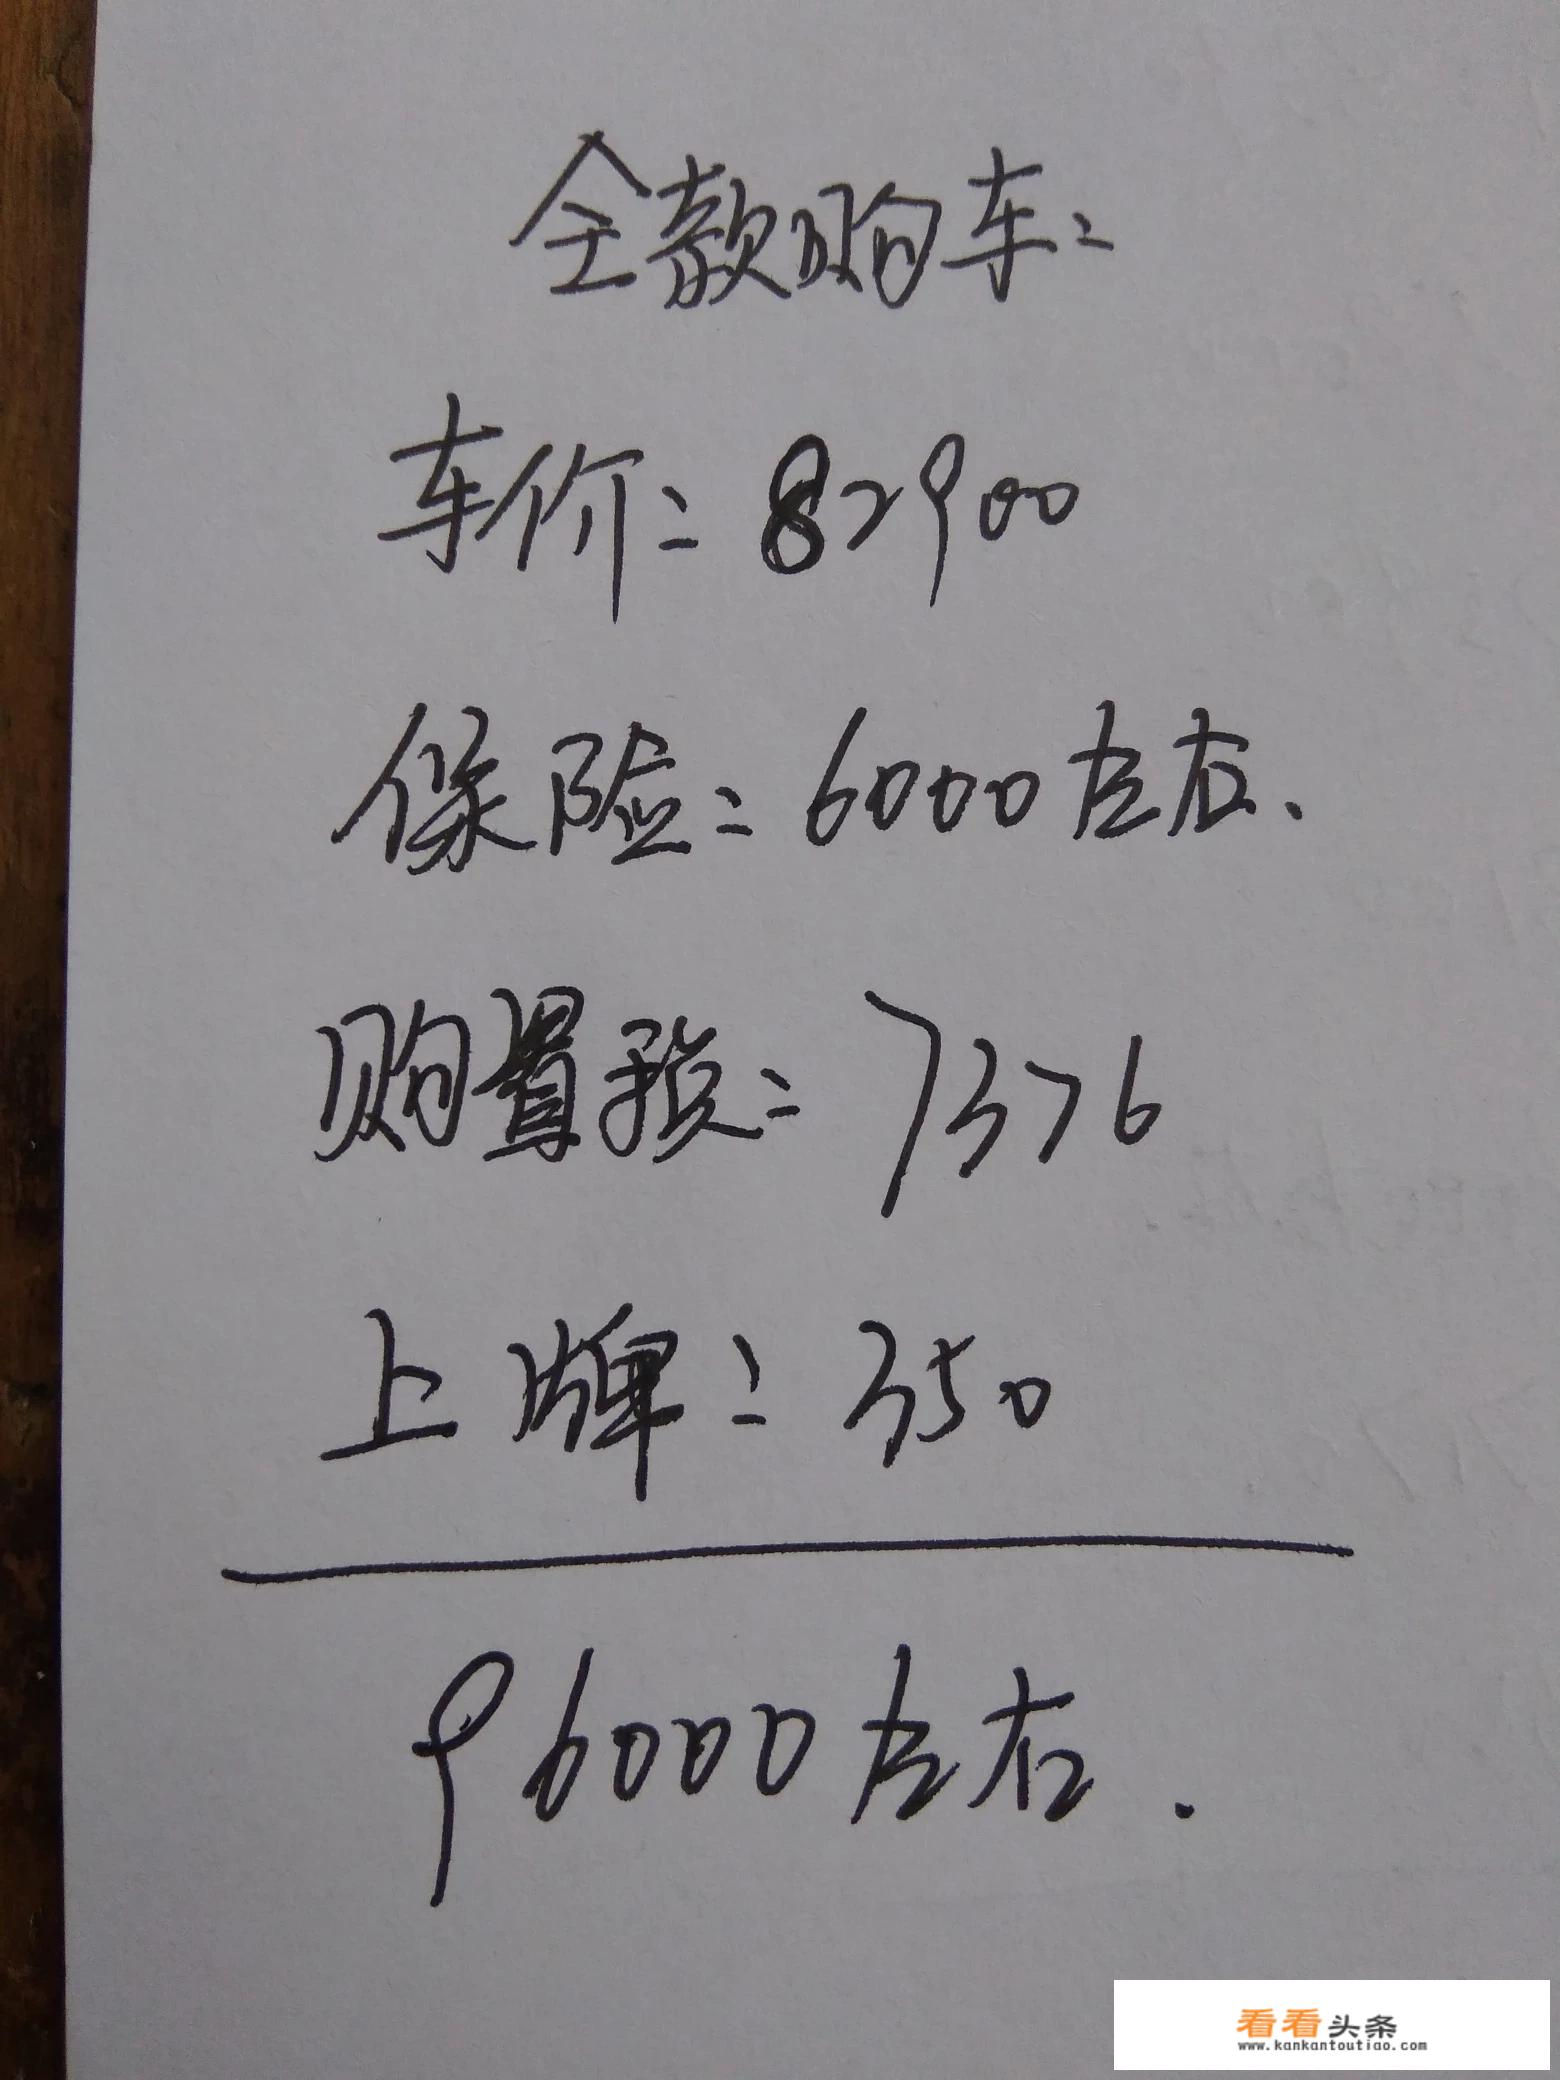 全款购车:
车价: 82900
保险: 6000左右.
购置税: 7376
上牌: 350
96000左右.
看看头条
www.kankantoutiao.com